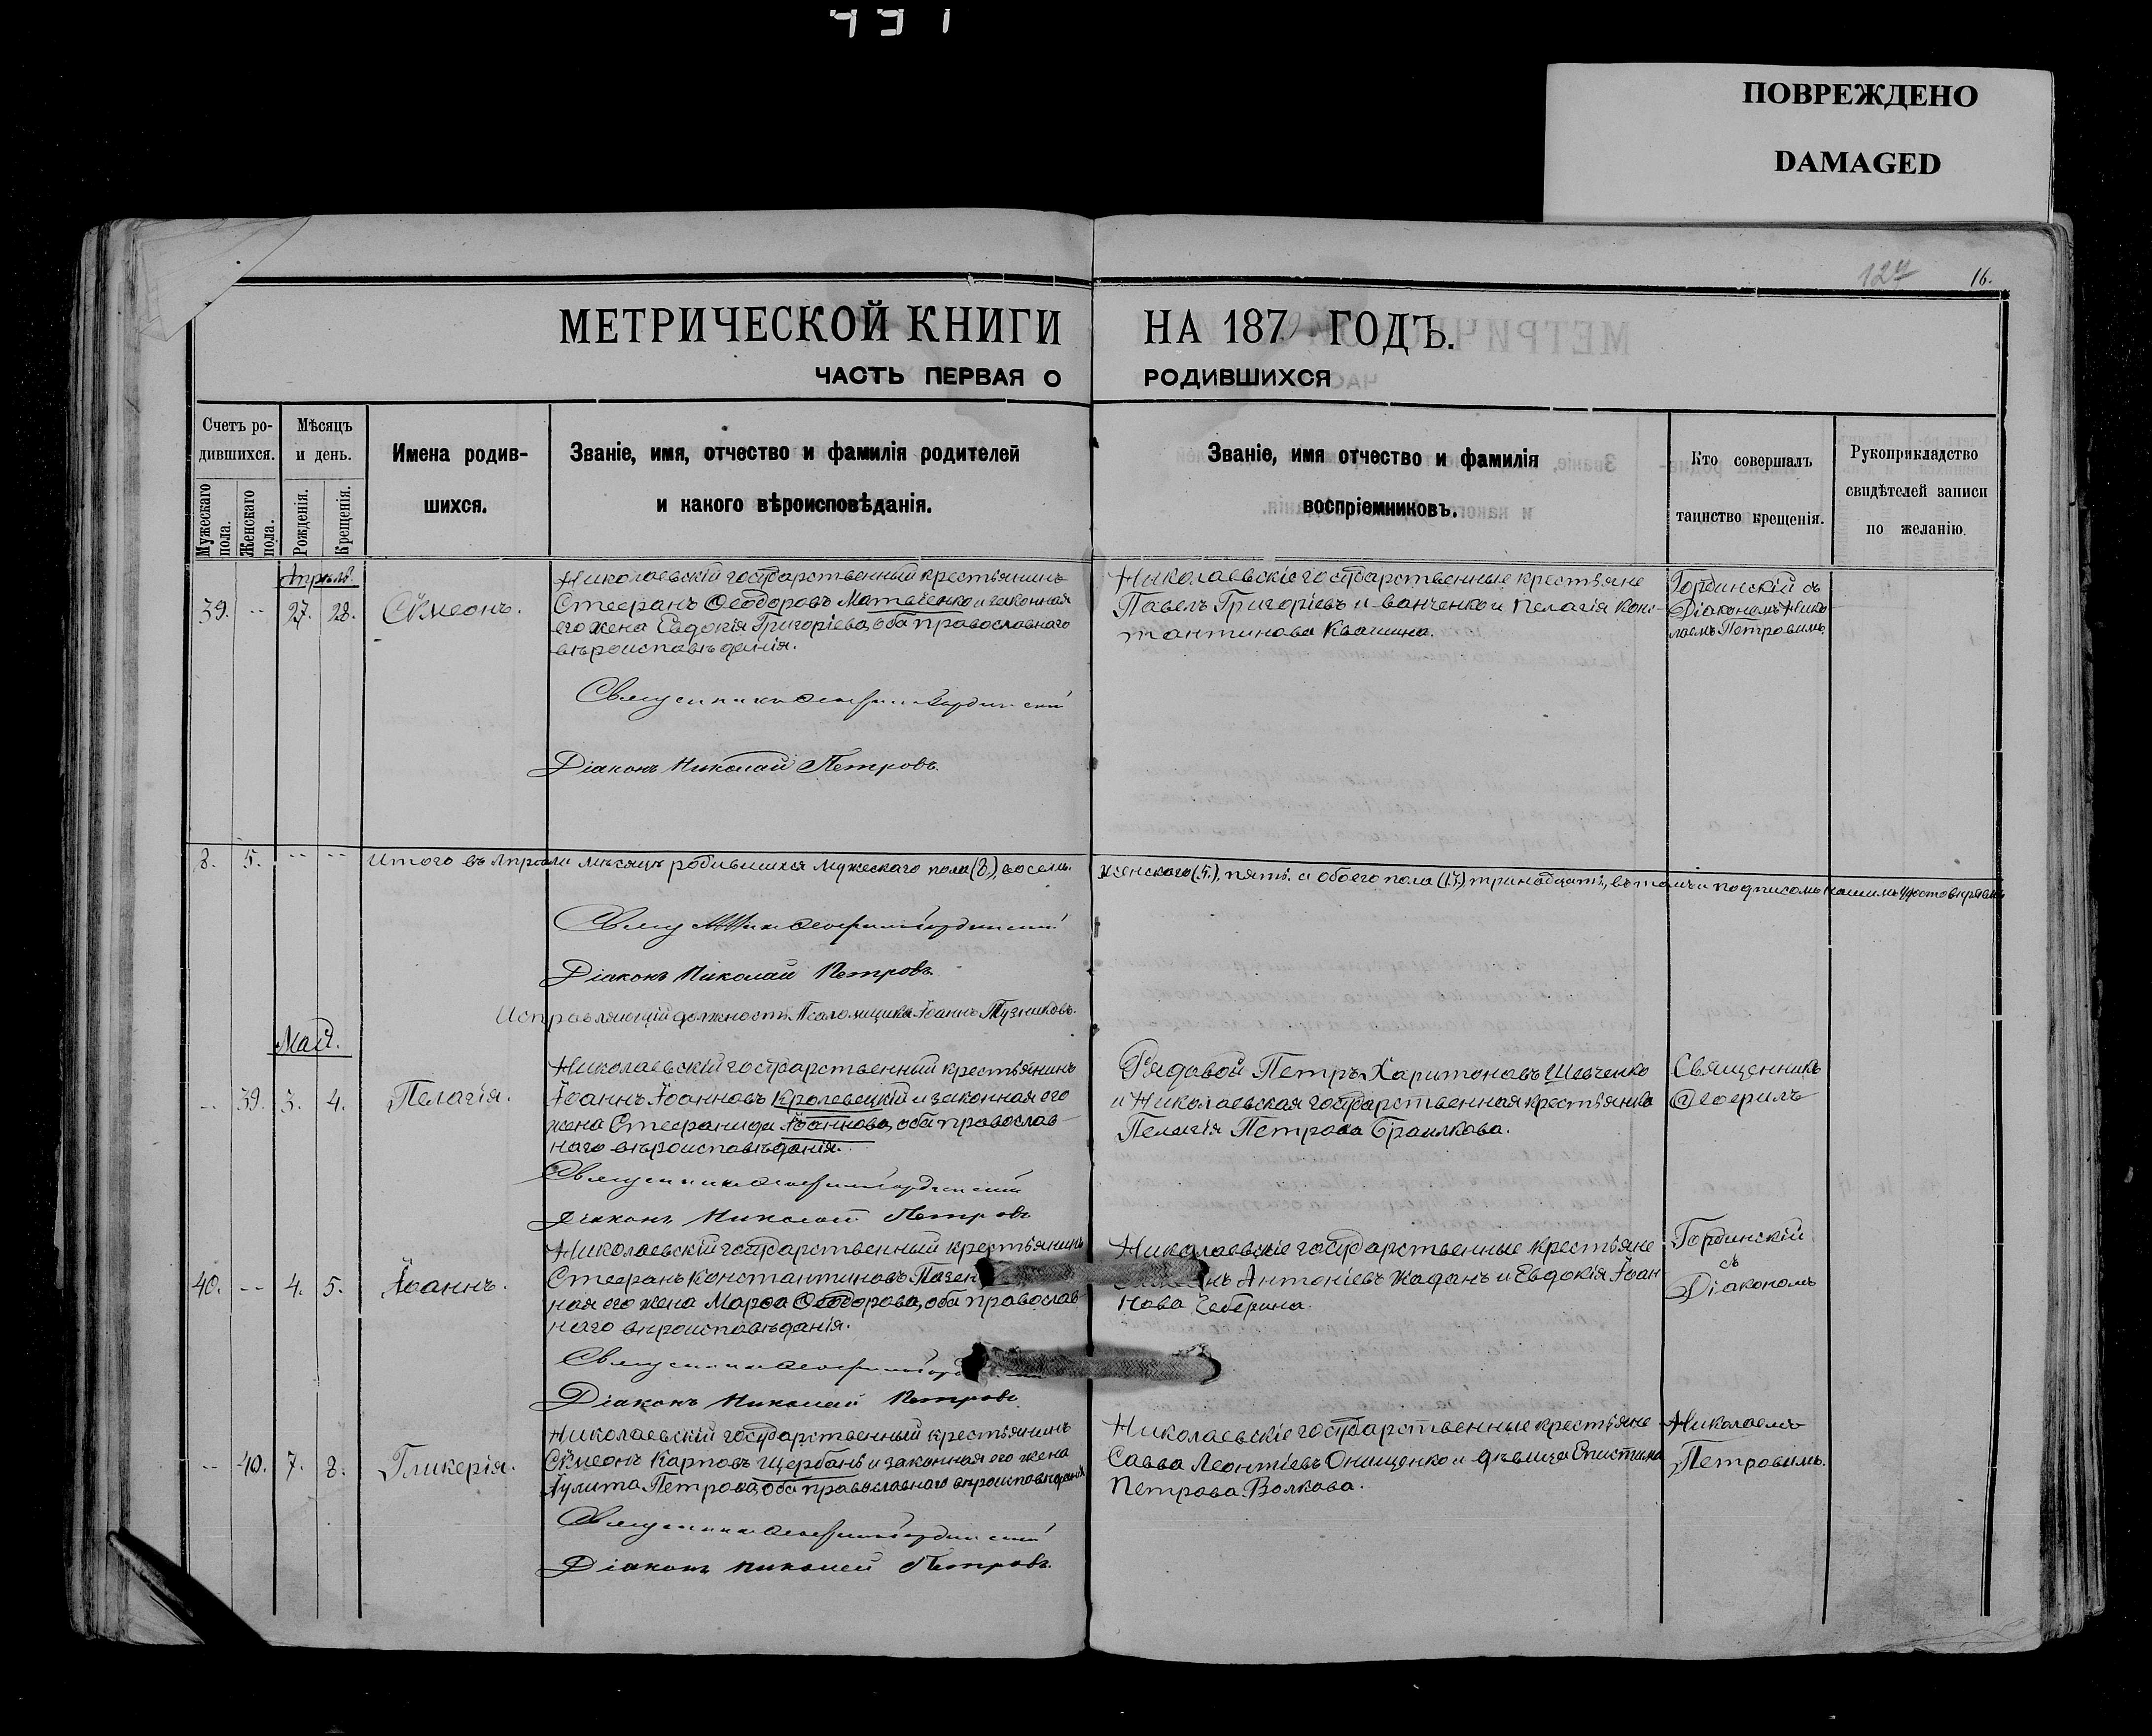 ПОВРЕЖДЕНО
DAMAGED
127
16.
МЕТРИЧЕСКОЙ КНИГИ НА 187 ГОДЪ.
ЧАСТЬ ПЕРВАЯ О РОДИВШИХСЯ
Счетъ ро-
дившихся.
Мужескаго пола.
Женскаго пола.
Мѣсяцъ
и день.
Рожденія.
Крещенія.
Имена родив-
шихся.
Званіе, имя, отчество и фамилія родителей
и какого вѣроисповѣданія.
Званіе, имя отчество и фамилія
воспріемниковъ.
Кто совершалъ
таинство крещенія.
Рукоприкладство
свидѣтелей записи
по желанію.
Апрѣль.
39. -- 27. 28. Сѵмеонъ.
Николаевскій государственный крестьянинъ
Стефанъ Ѳеодоровъ Матвіенко и законная
его жена Евдокія Григоріева, оба православнаго
вѣроисповѣданія.
Николаевскіе государственные крестьяне
Павелъ Григоріевъ Иванченко и Пелагія Конс-
тантинова Квашина.
Гординскій съ
Діакономъ Нико-
лаемъ Петровымъ.
Священникъ Георгій Гординскій
Діаконъ Николай Петровъ.
8. 5. -- -- Итого въ Апрѣли мѣсяцѣ родившихся мужескаго пола (8.), восемь. женскаго (5.), пять. а обоего пола (13.) тринадцать, въ томъ и подписомъ нашимъ удостовѣряемъ
Діаконъ Николай Петровъ.
Исправляющій должность Псаломщика Іоаннъ Тузниковъ.
Май.
-- 39. 3. 4. Пелагія.
Николаевскій государственный крестьянинъ
Іоаннъ Іоанновъ Кролевецкій и законная его
жена Стефанида Іоаннова, оба православ-
наго вѣроисповѣданія.
Рядовой Петръ Харитоновъ Шевченко
и Николаевская государственная крестьянка
Пелагія Петрова Браилкова.
Священникъ
Діаконъ Николай Петровъ
40. -- 4. 5. Іоаннъ.
Николаевскій государственный крестьянинъ
Стефанъ Константиновъ
ная его жена Марѳа Ѳеодорова, оба православ-
наго вѣроисповѣданія.
Николаевскіе государственные крестьяне
Антоніевъ Жаданъ и Евдокія Іоан-
нова Чеберина.
Гординскій
съ
Діакономъ
Діаконъ Николай Петровъ.
-- 40. 7. 8. Гликерія.
Николаевскій государственный крестьянинъ
Сѵмеонъ Карповъ Щербань и законная его жена
Іулита Петрова, оба православнаго вѣроисповѣданія
Николаевскіе государственные крестьяне
Савва Леонтіевъ Онищенко и дѣвица Епистима
Петрова Волкова.
Николаемъ
Петровымъ.
Діаконъ Николай Петровъ.